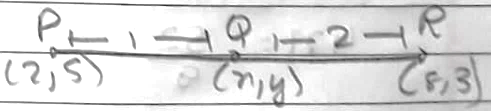 P 1 Q 2 R
(2,5) (x,y) (8,3)